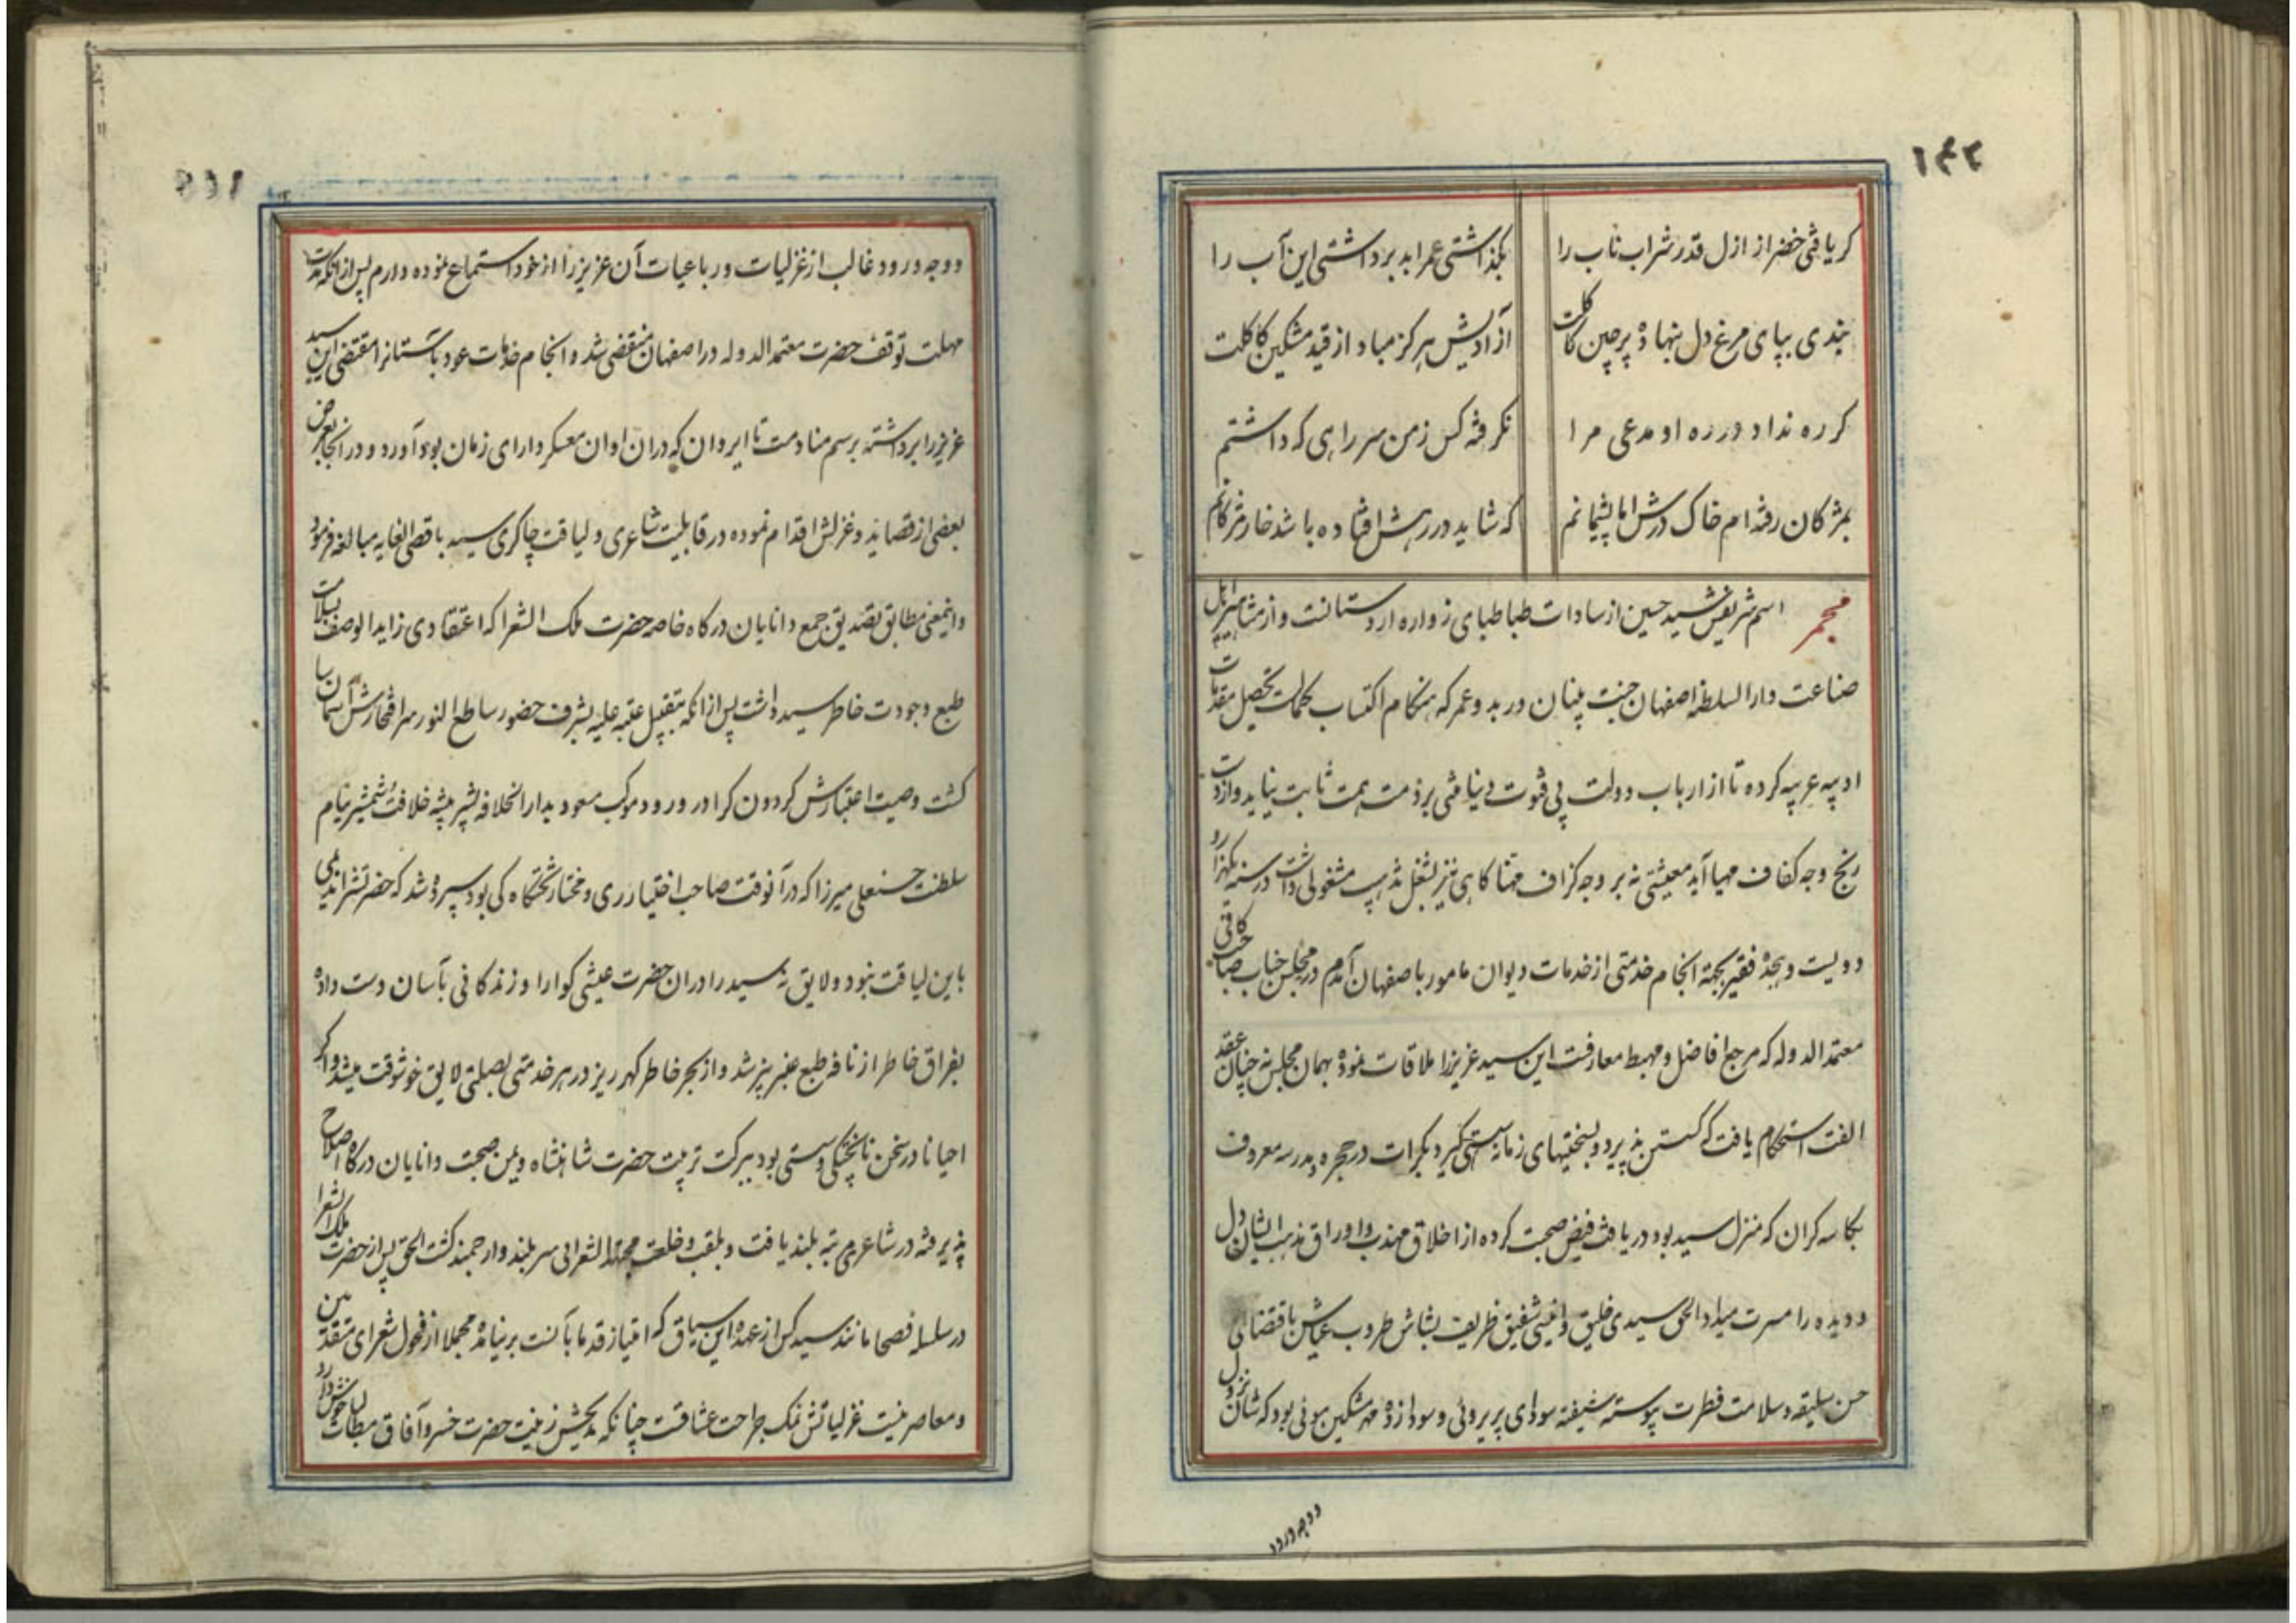 ۱۴۲
کر یافتی خضر از ازل قدر شراب ناب را بکذاشتی عمر ابد برداشتی این آب را
بندی بپای مرغ دل بنهاده پرچین کاکلت آزادیش هرکز مباد از قید مشکین کاکلت
کر ره نداد در ره او مدعی مرا نکرفته کس ز من سر راهی که داشتم
بمژکان رفته ام خاک درش اما پشیمانم که شاید در رهش افتاده باشد خار مژکانم
مجمر اسم شریفش سید حسین از سادات طباطبای زواره اردستانست و از مشاهیر اهل
صناعت دار السلطنه اصفهان جنت بنیان در بدو عمر که هنکام اکتساب کمالست تحصیل مقدمات
ادبیه عربیه کرده تا از ارباب دولت بی فتوت دنیا منتی بر ذمت همت ثابت نیاید و از دست
رنج وجه کفاف مهیا آید معیشتی نه بر وجه کزاف مهنا کاهی نیز بشغل تذهیب مشغولی داشت در سنه یکهزار و
دویست و هجده فقیر بجهة انجام خدمتی از خدمات دیوان مامور باصفهان آمدم در مجلس جناب صاحب کافی
معتمد الدوله که مرجع افاضل و مهبط معارفست این سید عزیز را ملاقات نموده بهمان مجلس نه چنان عقد
الفت استحکام یافت که کسستن پذیرد و بسختیهای زمانه سستی کیرد بکرات در حجره مدرسه معروف
بکاسه کران که منزل سید بود دریافت فیض صحبت کرده از اخلاق مهذب و اوراق مذهب ایشان دل
و دیده را مسرت میداد الحق سیدی خلیق و انیسی شفیق ظریف بشاش طروب عیاش باقتضای
حسن سلیقه و سلامت فطرت پیوسته شیفته سودای پریروئی و سودازده مهر مشکین موئی بود که شان نزول
دو وجه ورود
دو وجه ورود غالب از غزلیات و رباعیات آن عزیز را از خود استماع نموده دارم پس از آنکه مدت
مهلت توقف حضرت معتمد الدوله در اصفهان منقضی شد و انجام خدمات عود باستانرا مقتضی این سید
عزیز را برداشته برسم منادمت تا ایروان که دران اوان معسکر دارای زمان بود آورد و در انجا بعرض
بعضی از قصاید و غزلش اقدام نموده در قابلیت شاعری و لیاقت چاکری سید باقصی الغایه مبالغه فرمود
و اینمعنی مطابق تصدیق جمع دانایان درکاه خاصه حضرت ملک الشعرا که اعتقادی زاید الوصف بسلامت
طبع وجودت خاطر سید داشت پس از انکه بتقبیل عتبه علیه بشرف حضور ساطع النور سر افتخارش آسمان سا
کشت وصیت اعتبارش کردون کرا در ورود موکب مسعود بدار الخلافه بشیر بیشه خلافت و شمشیر نیام
سلطنت حسنعلی میرزا که در آنوقت صاحب اختیار ری و مختار تختکاه کی بود سپرده شد که حضرتش را ندیمی
باین لیاقت نبود و لایق نه سید را دران حضرت عیشی کوارا و زندکانی بآسان دست داده
بفراق خاطر از نافه طبع عنبر بیز شد و از بحر خاطر کهر ریز در هر خدمتی بصلتی لایق خوشوقت میشد و اکر
احیانا در سخن ناپختکی و سستی بود ببرکت تربیت حضرت شاهنشاه و یمن صحبت دانایان درکاه اصلاح
پذیرفته در شاعری رتبه بلند یافت و بلقب و خلعت مجتهد الشعرائی سربلند و ارجمند کشت الحق پس از حضرت ملک الشعرا
در سلسله فصحا مانند سید کس از عهده این سیاق که امتیاز قدما بآنست برنیامده مجملا از فحول شعرای متقدمین
و معاصرینست غزلیاتش نمک جراحت عشاقست چنانکه مدیحش زینت حضرت خسرو آفاق مطالب خوش دارد